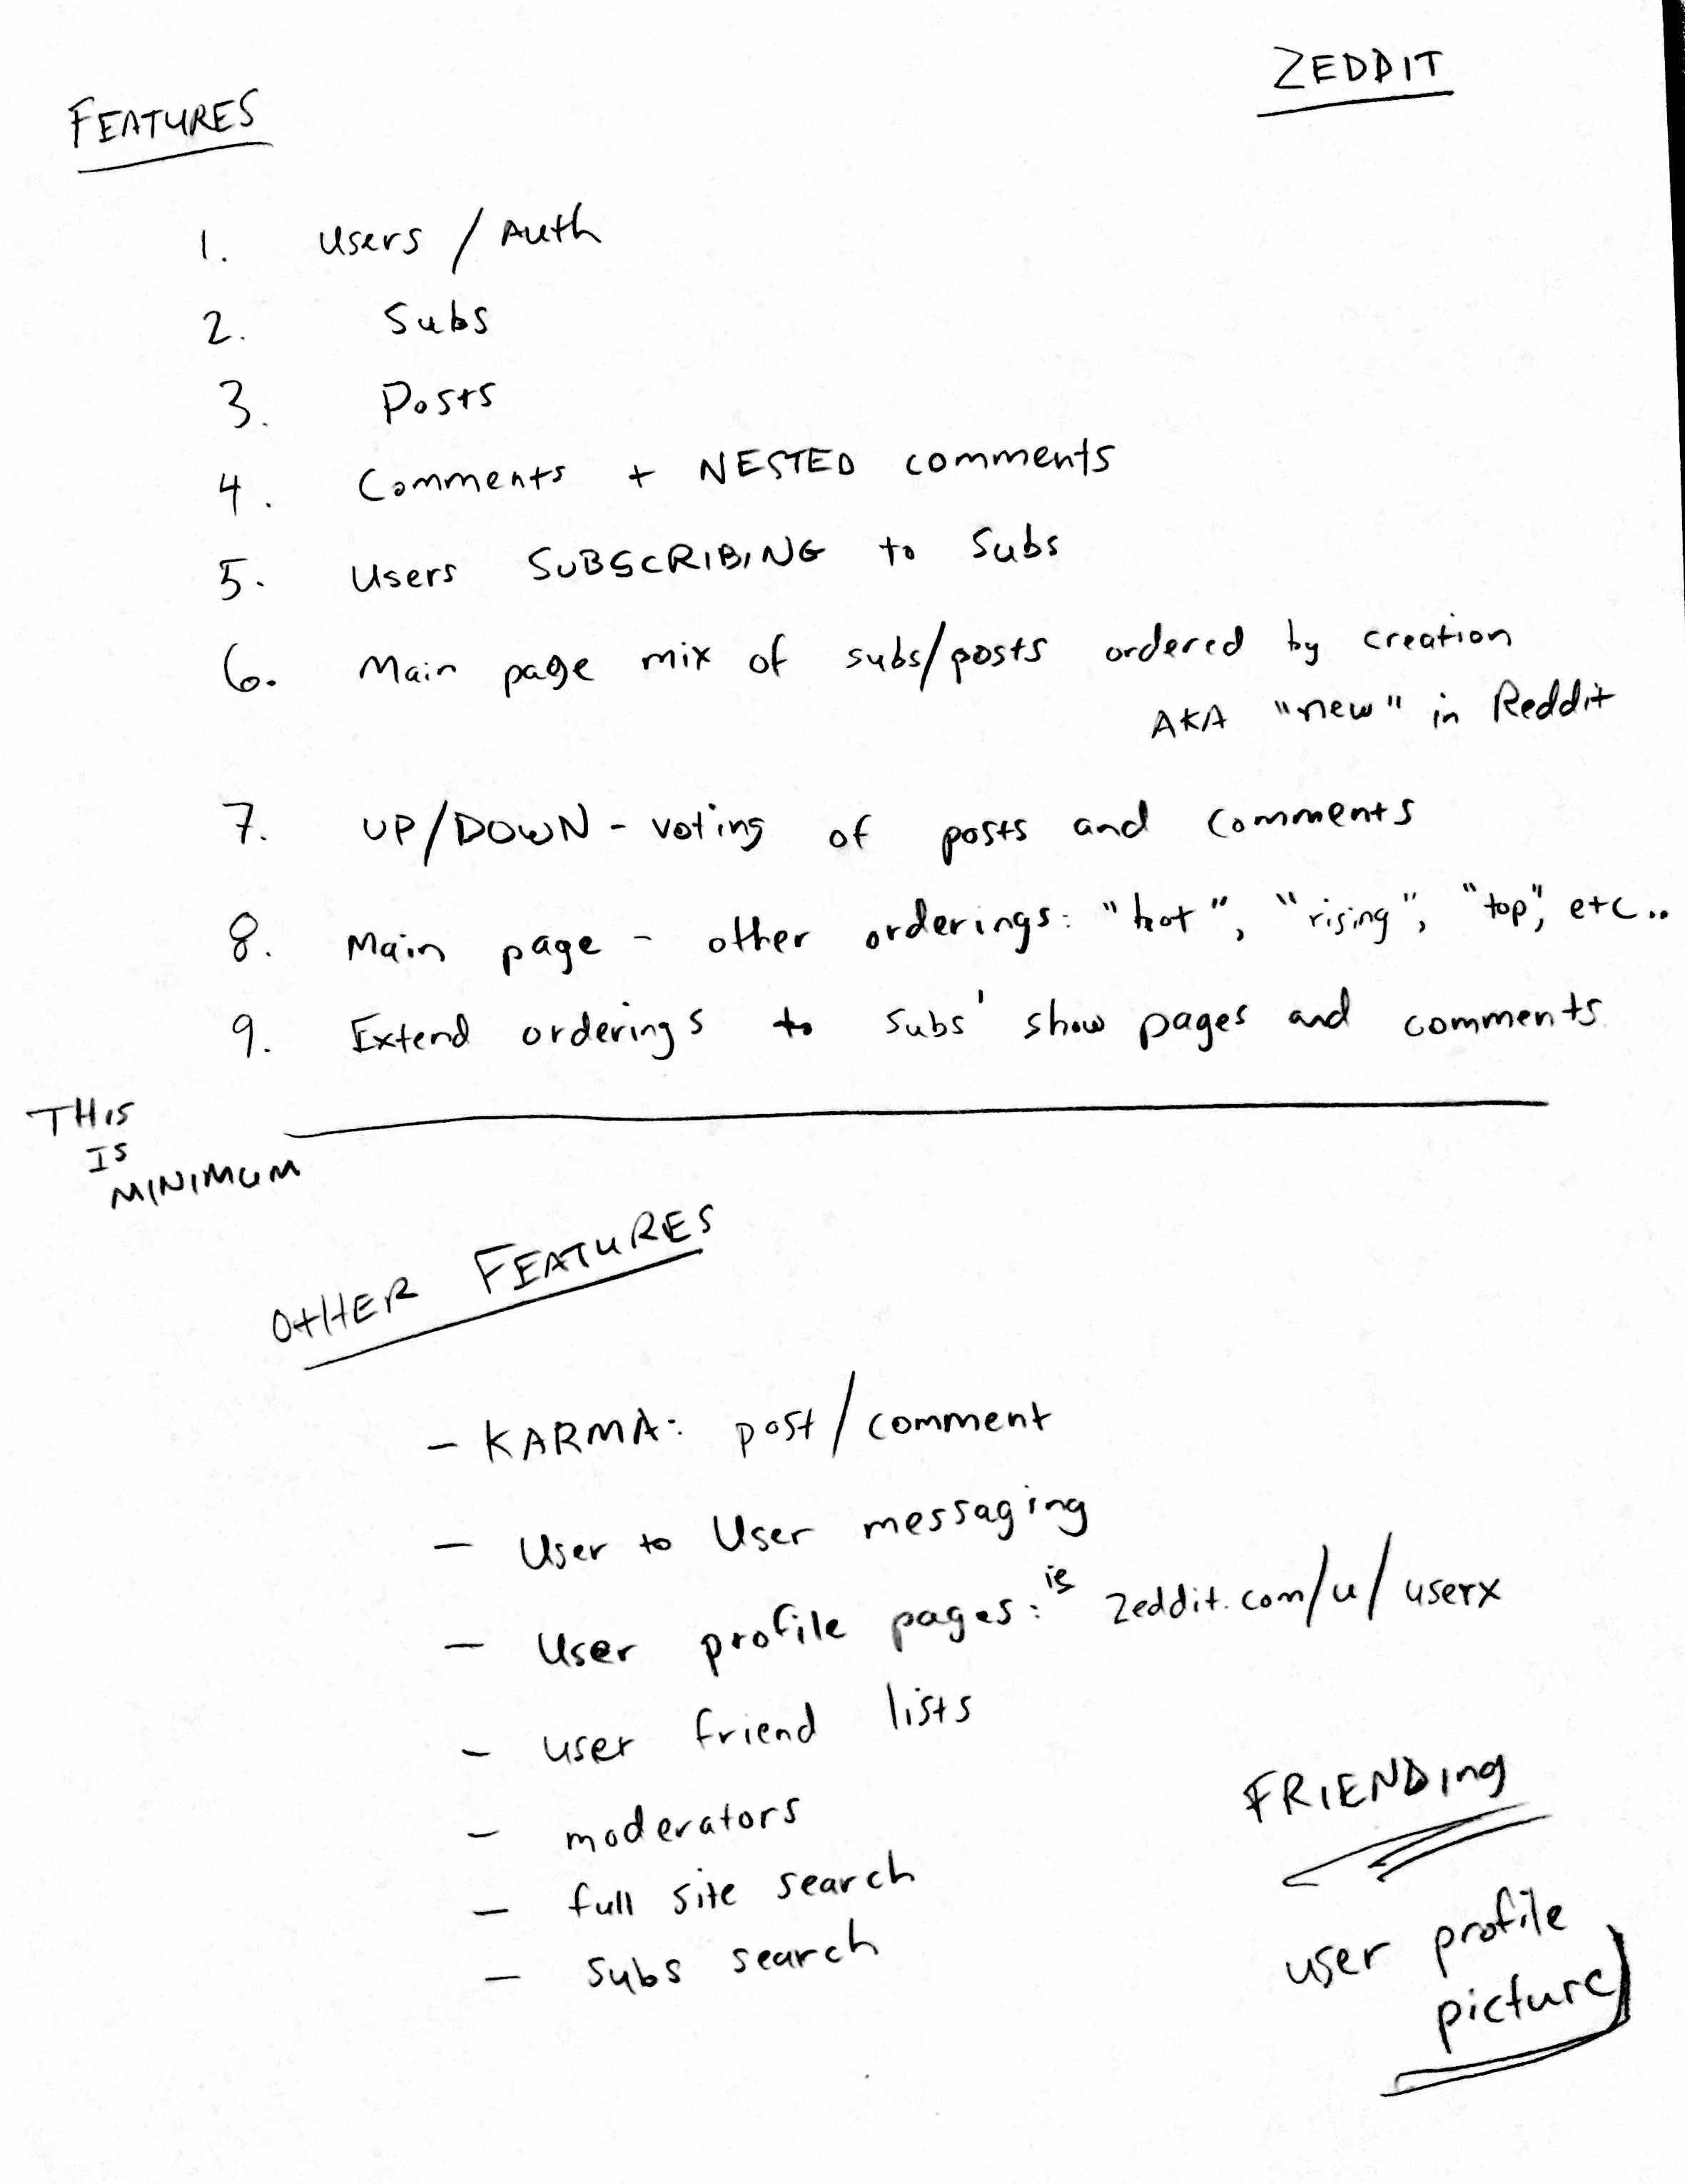 ZEDDIT
FEATURES
1. Users / Auth
2. Subs
3. Posts
4. Comments + NESTED comments
5. Users SUBSCRIBING to Subs
6. Main page mix of subs/posts ordered by creation
AKA "new" in Reddit
7. UP/DOWN - voting of posts and comments
8. Main page - other orderings: "hot", "rising", "top", etc..
9. Extend orderings to subs' show pages and comments
THIS
IS
MINIMUM
OTHER FEATURES
- KARMA: post/comment
- User to User messaging
- User profile pages: ie zeddit.com/u/userx
- user friend lists
- moderators
- full site search
- Subs search
FRIENDING
user profile
picture